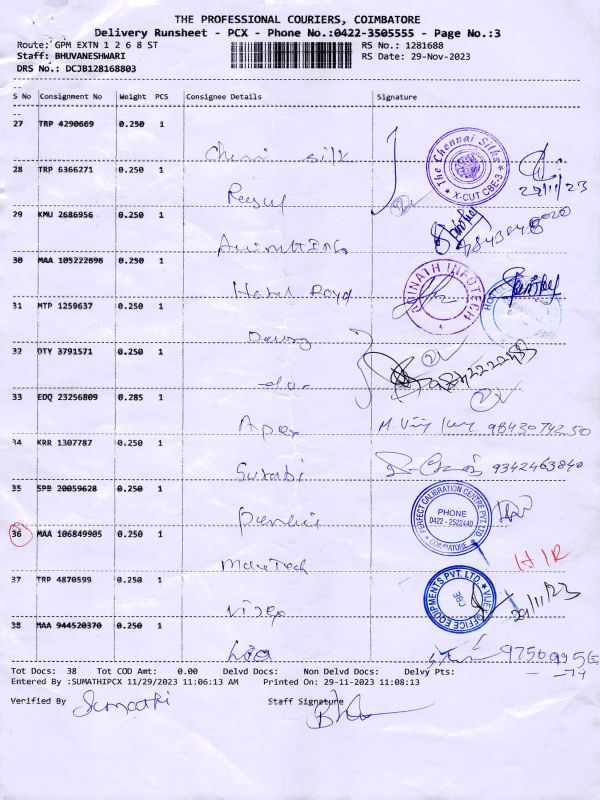 THE PROFESSIONAL COURIERS, COIMBATORE
Delivery Runsheet - PCX - Phone No.:0422-3505555 - Page No.:3
Route: GPM EXTN 1 2 6 8 ST RS No.: 1281688
Staff: BHUVANESHWARI RS Date: 29-Nov-2023
DRS No.: DCJB128168803
S No Consignment No Weight PCS Consignee Details Signature
27 TRP 4290669 0.250 1
Chennai silk
The Chennai Silks
X-CUT CBE-3
28 TRP 6366271 0.250 1
29 KMU 2686956 0.250 1
30 MAA 105222696 0.250 1
Hotel Royal
ADINATH INFOTECH
31 MTP 1259637 0.250 1
32 OTY 3791571 0.250 1
33 EDQ 23256809 0.285 1
Apex 98430 742 50
34 KRR 1307787 0.250 1
Surabi 9342463840
35 SPB 20059628 0.250 1
PERFECT CALIBRATION CENTRE PVT. LTD
PHONE
0422 - 2522440
COIMBATORE
36 MAA 106849905 0.250 1
MaxeTech
37 TRP 4870599 0.250 1
VIJEY OFFICE EQUIPMENTS PVT. LTD.
Vijey 29/11/23
38 MAA 944520370 0.250 1
Tot Docs: 38 Tot COD Amt: 0.00 Delvd Docs: Non Delvd Docs: Delvy Pts:
Entered By :SUMATHIPCX 11/29/2023 11:06:13 AM Printed On: 29-11-2023 11:08:13
Verified By Sumathi Staff Signature